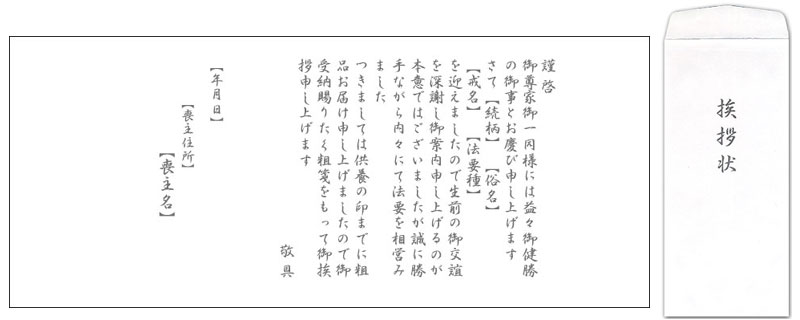 謹啓
御尊家御一同様には益々御健勝
の御事とお慶び申し上げます
さて【続柄】【俗名】
【戒名】【法要種】
を迎えましたので生前の御交誼
を深謝し御案内申し上げるのが
本意ではございましたが誠に勝
手ながら内々にて法要を相営み
ました
つきましては供養の印までに粗
品お届け申し上げましたので御
受納賜りたく粗箋をもって御挨
拶申し上げます
敬具
【年月日】
【喪主住所】
【喪主名】
挨拶状